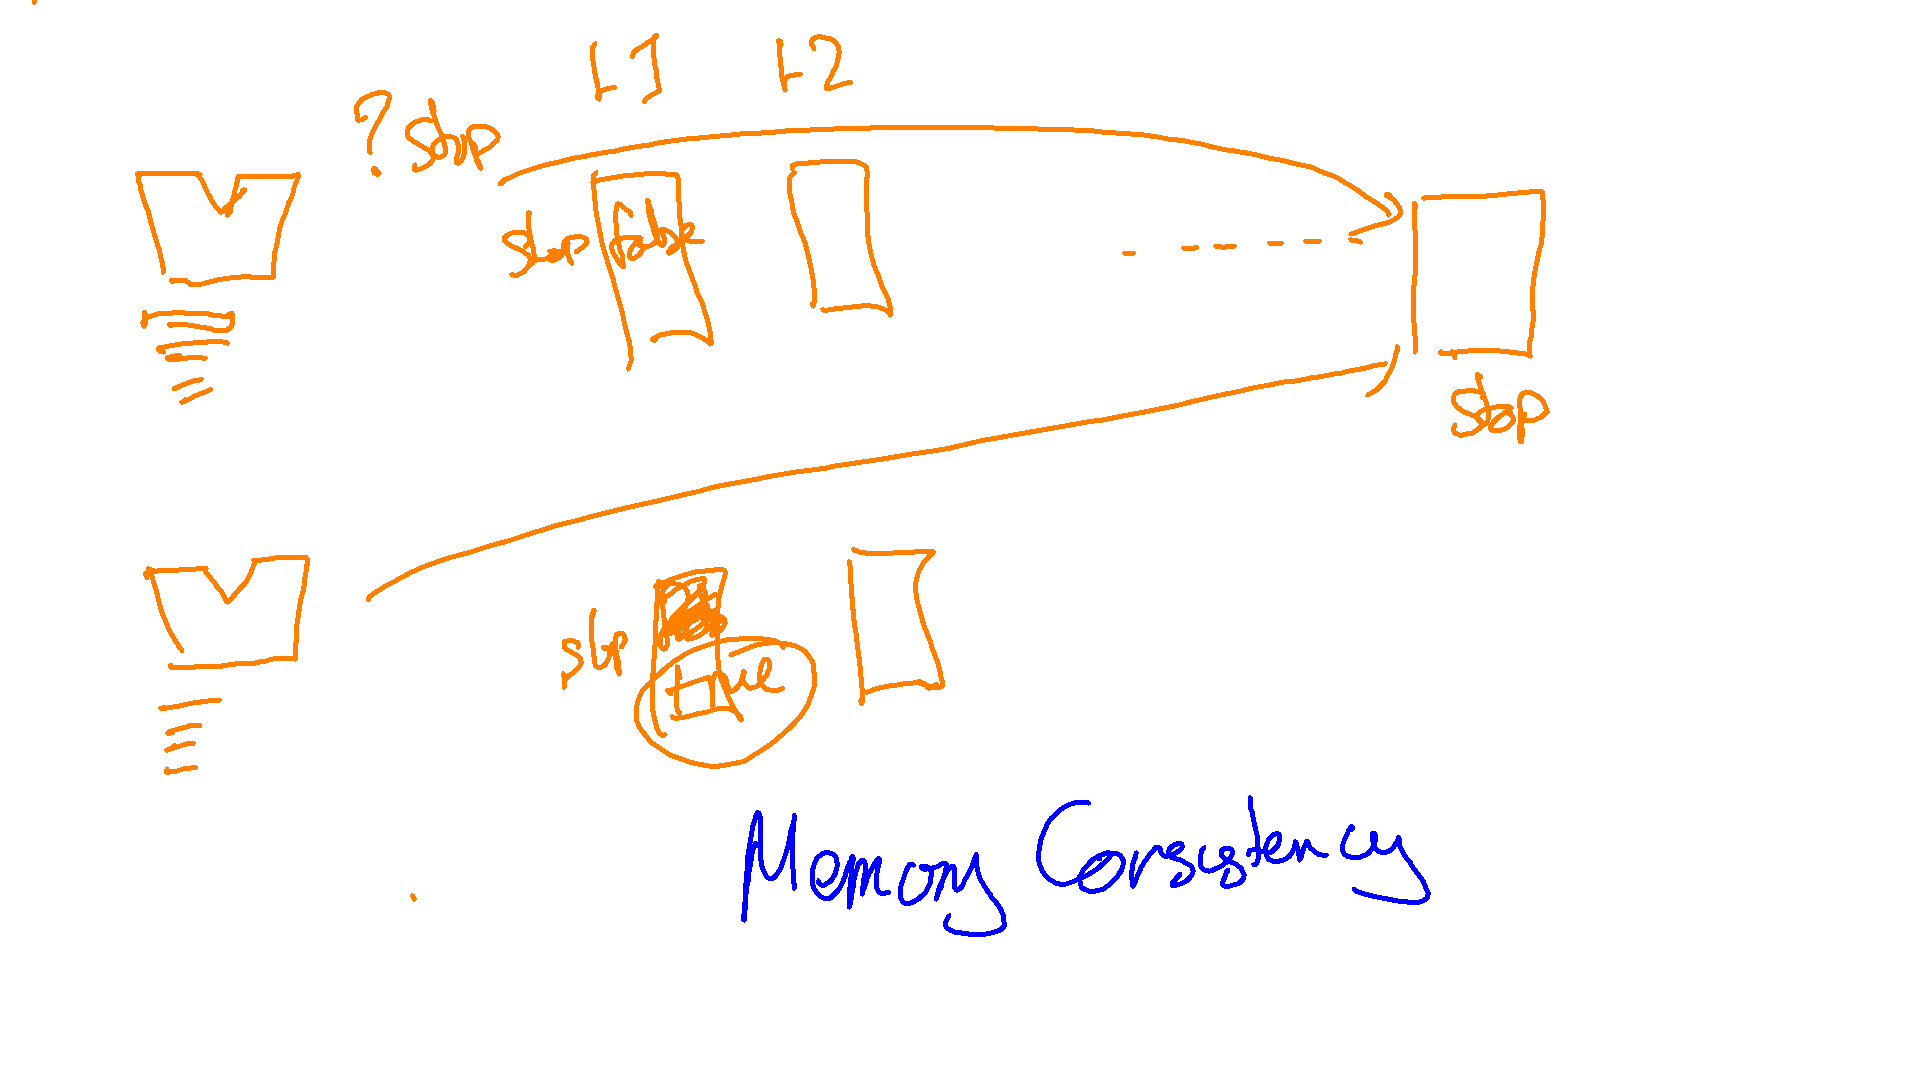 L1 L2
? stop
stop false
stop
stop
true
Memory Consistency